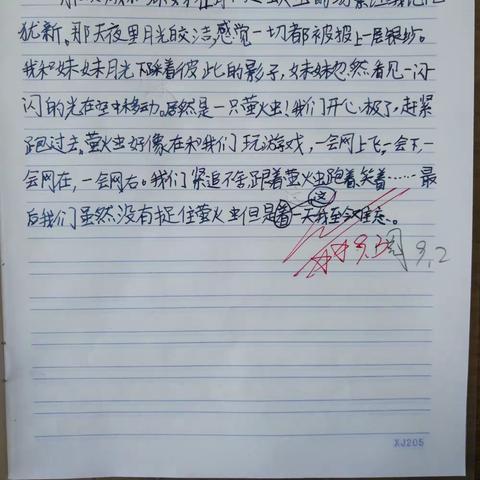 犹新。那天夜里月光皎洁,感觉一切都被披上一层银纱。
我和妹妹月光下踩着彼此的影子,妹妹忽然看见一闪
闪的光在空中移动。居然是一只萤火虫!我们开心极了,赶紧
跑过去。萤火虫好像在和我们玩游戏,一会网上飞,一会下,一
会网在,一会网右。我们紧追不舍,跟着萤火虫跑着,笑着……最
后我们虽然没有捉住萤火虫但是这一天我至今难忘。
9.3
9.2
XJ205